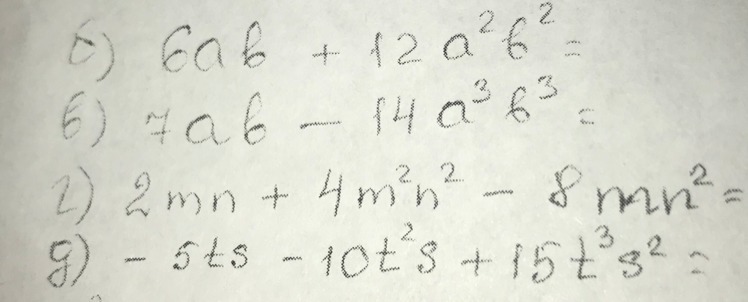 б) 6ab + 12a²b² =
в) 7ab − 14a³b³ =
г) 2mn + 4m²n² − 8mn² =
д) − 5ts − 10t²s + 15t³s² =